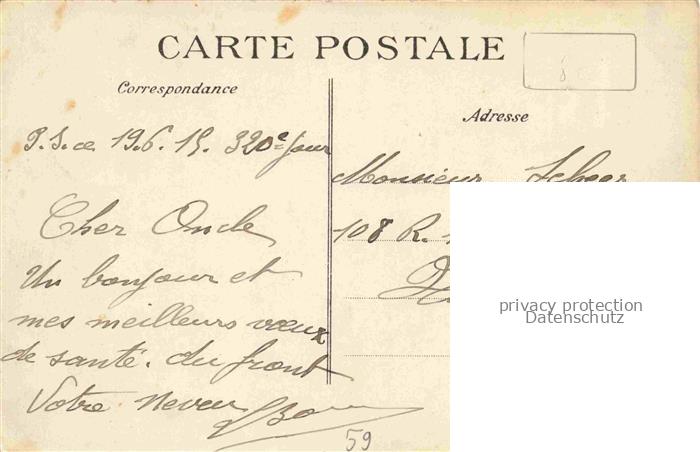 CARTE POSTALE
Correspondance
Adresse
P.S. ce 19.6.15. 320e Jour
Cher Oncle
Un bonjour et
mes meilleurs vœux
de santé. du front
Votre neveu
Monsieur
108 R.
privacy protection
Datenschutz
59